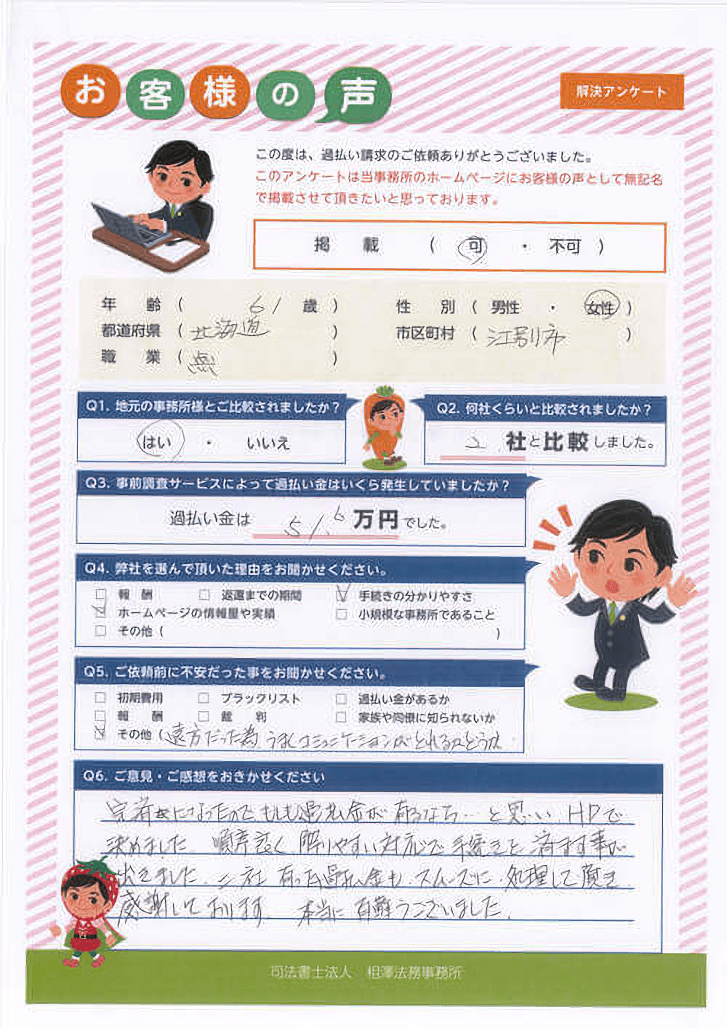 お客様の声
解決アンケート
この度は、過払い請求のご依頼ありがとうございました。
このアンケートは当事務所のホームページにお客様の声として無記名
で掲載させて頂きたいと思っております。
掲 載 ( 可 ・ 不可 )
年 齢 ( 61 歳 ) 性 別 ( 男性 ・ 女性 )
都道府県 ( 北海道 ) 市区町村 ( 江別市 )
職 業 ( 無 )
Q1. 地元の事務所様とご比較されましたか?
はい ・ いいえ
Q2. 何社くらいと比較されましたか?
2 社と比較しました。
Q3. 事前調査サービスによって過払い金はいくら発生していましたか?
過払い金は 51.6 万円でした。
Q4. 弊社を選んで頂いた理由をお聞かせください。
□ 報 酬 □ 返還までの期間 ☑ 手続きの分かりやすさ
☑ ホームページの情報量や実績 □ 小規模な事務所であること
□ その他 ( )
Q5. ご依頼前に不安だった事をお聞かせください。
□ 初期費用 □ ブラックリスト □ 過払い金があるか
□ 報 酬 □ 裁 判 □ 家族や同僚に知られないか
☑ その他 (遠方だった為、うまくコミュニケーションがとれるかどうか
Q6. ご意見・ご感想をおきかせください
になったので、もしも過払金が有るなら… と思い HPで
決めました。順序良く、解りやすい対応で手続きを済ます事が
出来ました。二社 有った過払い金も、スムーズに処理して頂き、
感謝しております。本当に有難うございました。
司法書士法人 相澤法務事務所